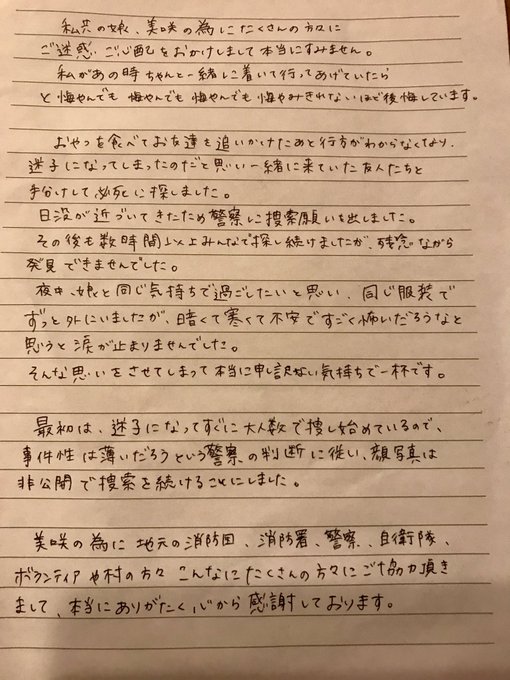 私共の娘、美咲の為にたくさんの方々に
ご迷惑 ご心配をおかけしまして本当にすみません。
私があの時ちゃんと一緒に着いて行ってあげていたら
と悔やんでも 悔やんでも 悔やんでも 悔やみきれないほど後悔しています。
おやつを食べてお友達を追いかけたあと行方がわからなくなり、
迷子になってしまったのだと思い一緒に来ていた友人たちと
手分けして必死に探しました。
日没が近づいてきたため警察に捜索願いを出しました。
その後も数時間以上みんなで探し続けましたが、残念ながら
発見できませんでした。
夜中、娘と同じ気持ちで過ごしたいと思い、同じ服装で
ずっと外にいましたが、暗くて寒くて不安ですごく怖いだろうなと
思うと涙が止まりませんでした。
そんな思いをさせてしまって本当に申し訳ない気持ちで一杯です。
最初は、迷子になってすぐに大人数で捜し始めているので、
事件性は薄いだろうという警察の判断に従い、顔写真は
非公開で捜索を続けることにしました。
美咲の為に地元の消防団、消防署、警察、自衛隊、
ボランティアや村の方々 こんなにたくさんの方々にご協力頂き
まして、本当にありがたく、心から感謝しております。